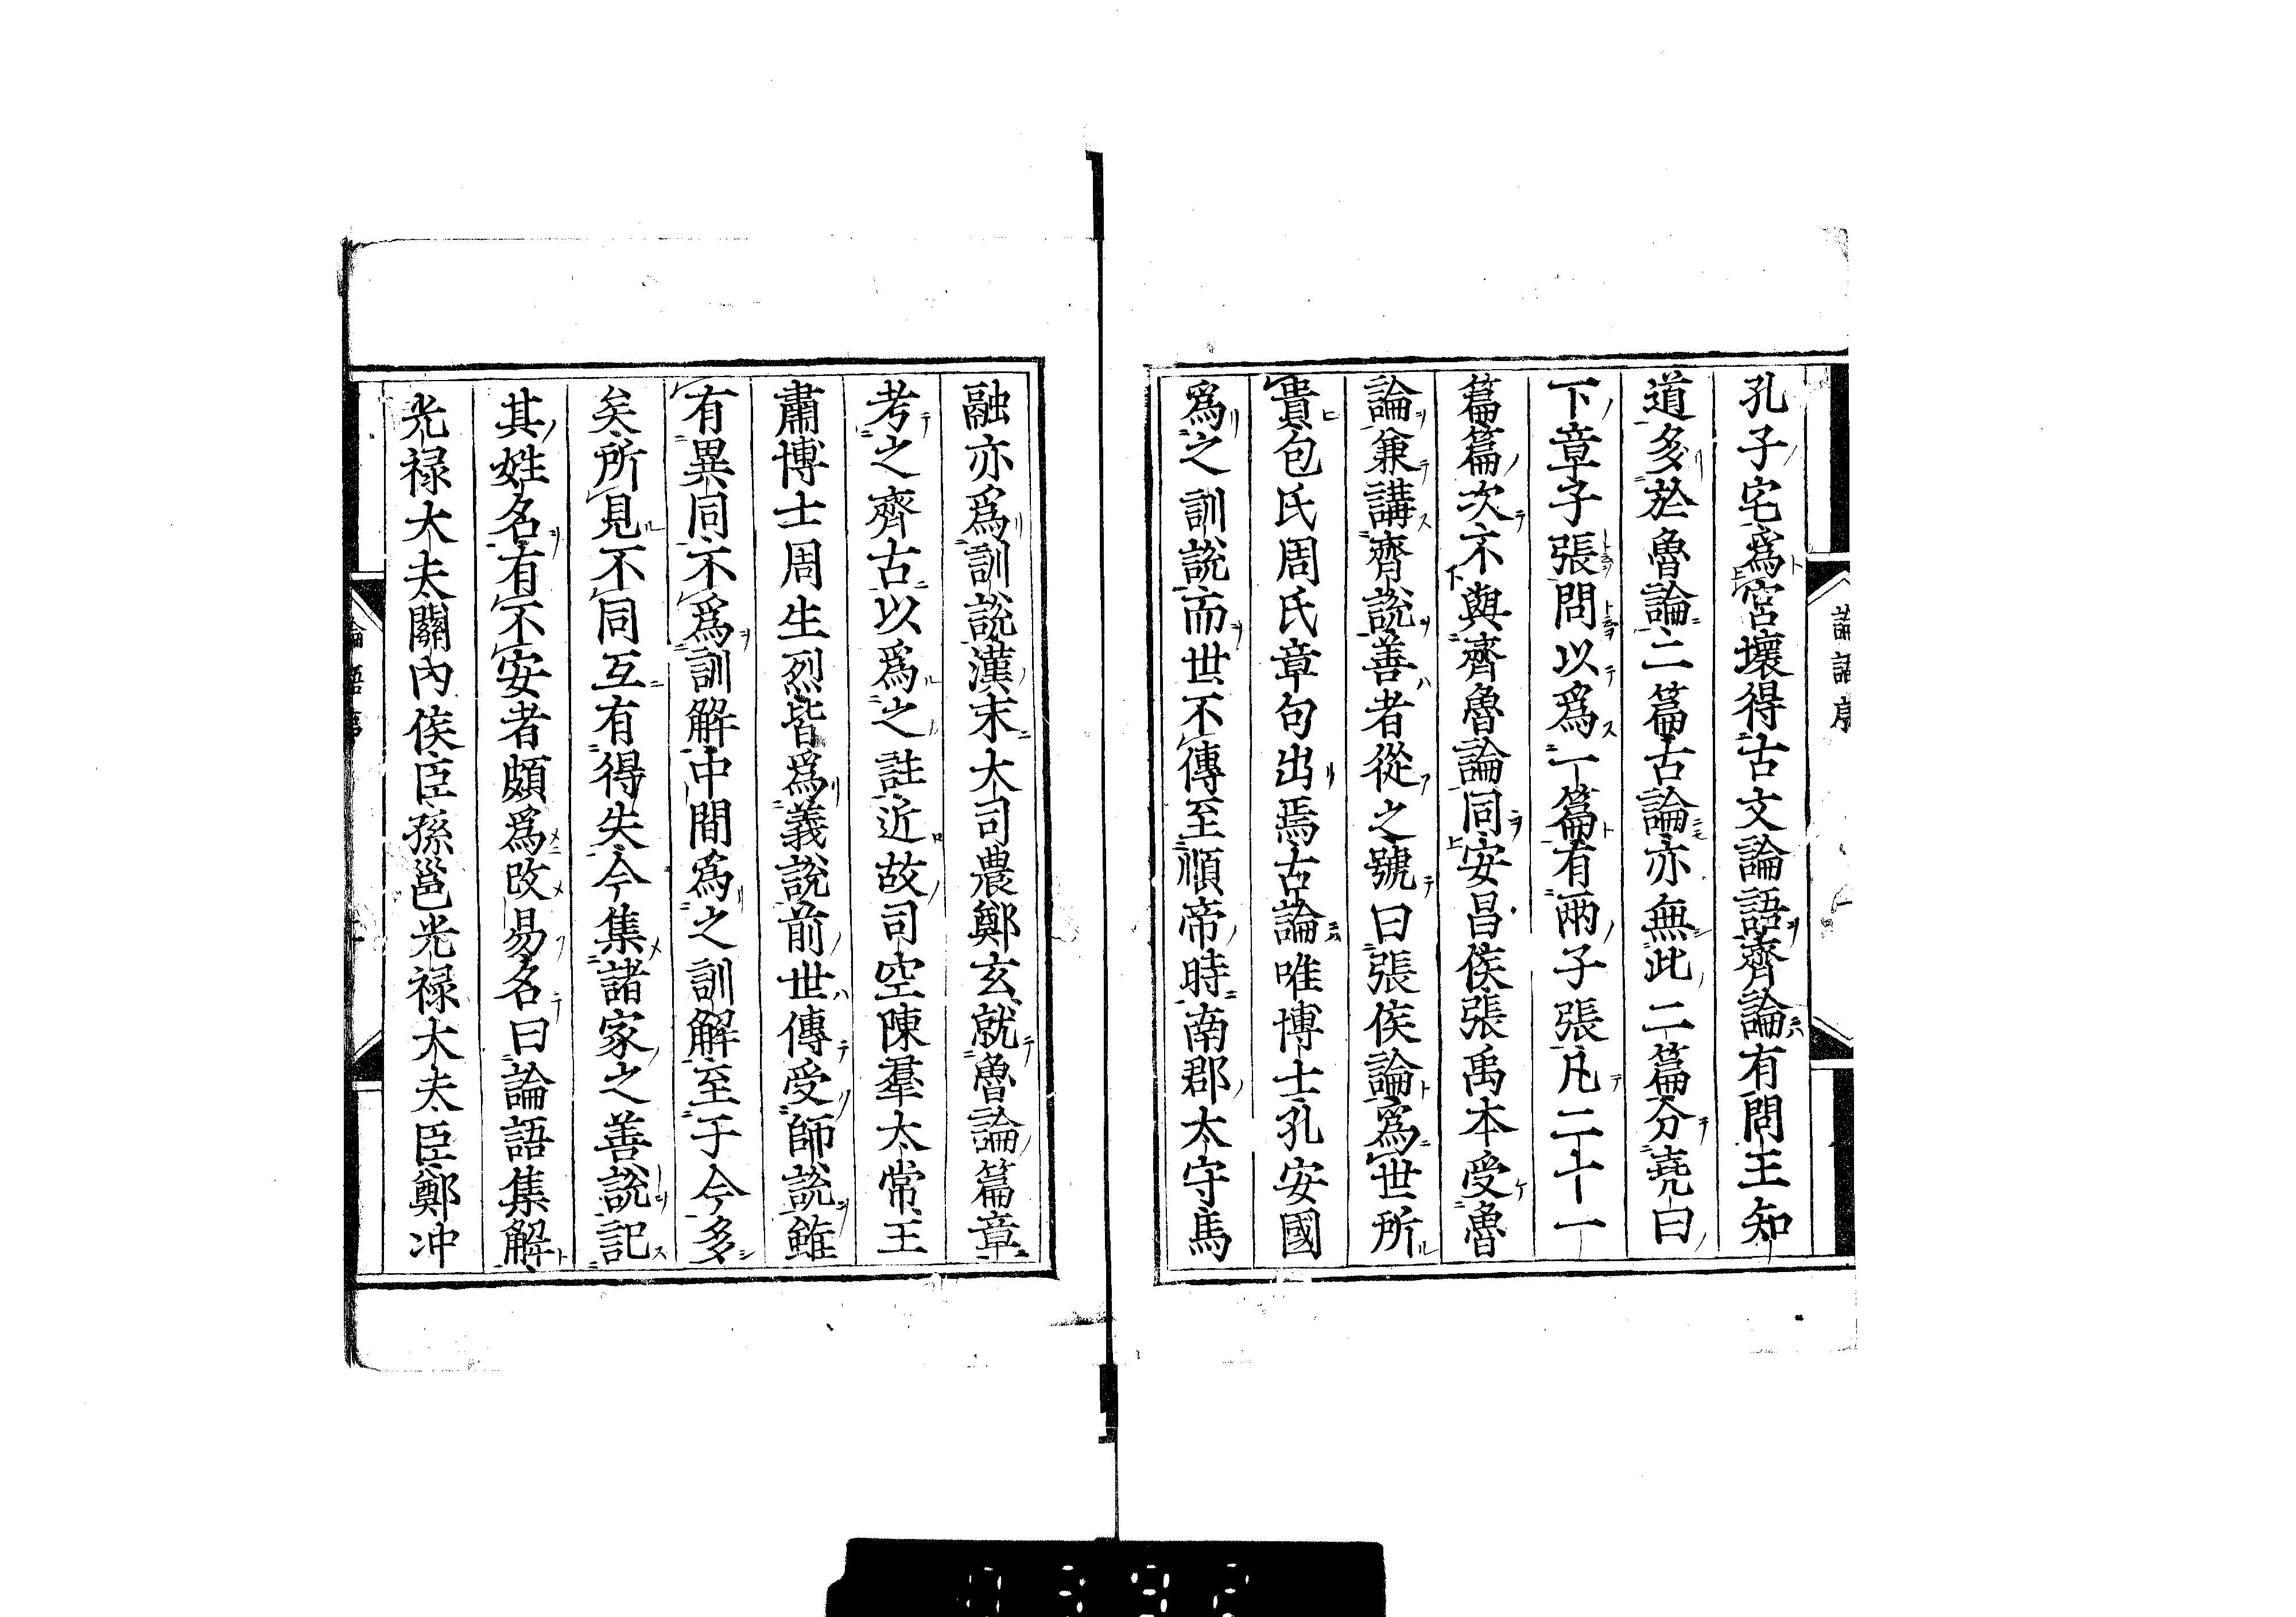 論語序
孔子宅爲宮壞得古文論語齊論有問王知
道多於魯論二篇古論亦無此二篇分堯曰
下章子張問以爲一篇有兩子張凡二十一
篇篇次不與齊魯論同安昌侯張禹本受魯
論兼講齊說善者從之號曰張侯論爲世所
貴包氏周氏章句出焉古論唯博士孔安國
爲之訓說而世不傳至順帝時南郡太守馬
融亦爲訓說漢末大司農鄭玄就魯論篇章
考之齊古以爲之註近故司空陳羣太常王
肅博士周生烈皆爲義說前世傳受師說雖
有異同不爲訓解中間爲之訓解至于今多
矣所見不同互有得失今集諸家之善說記
其姓名有不安者頗爲改易名曰論語集解
光禄大夫關內侯臣孫邕光禄大夫臣鄭冲
論語序